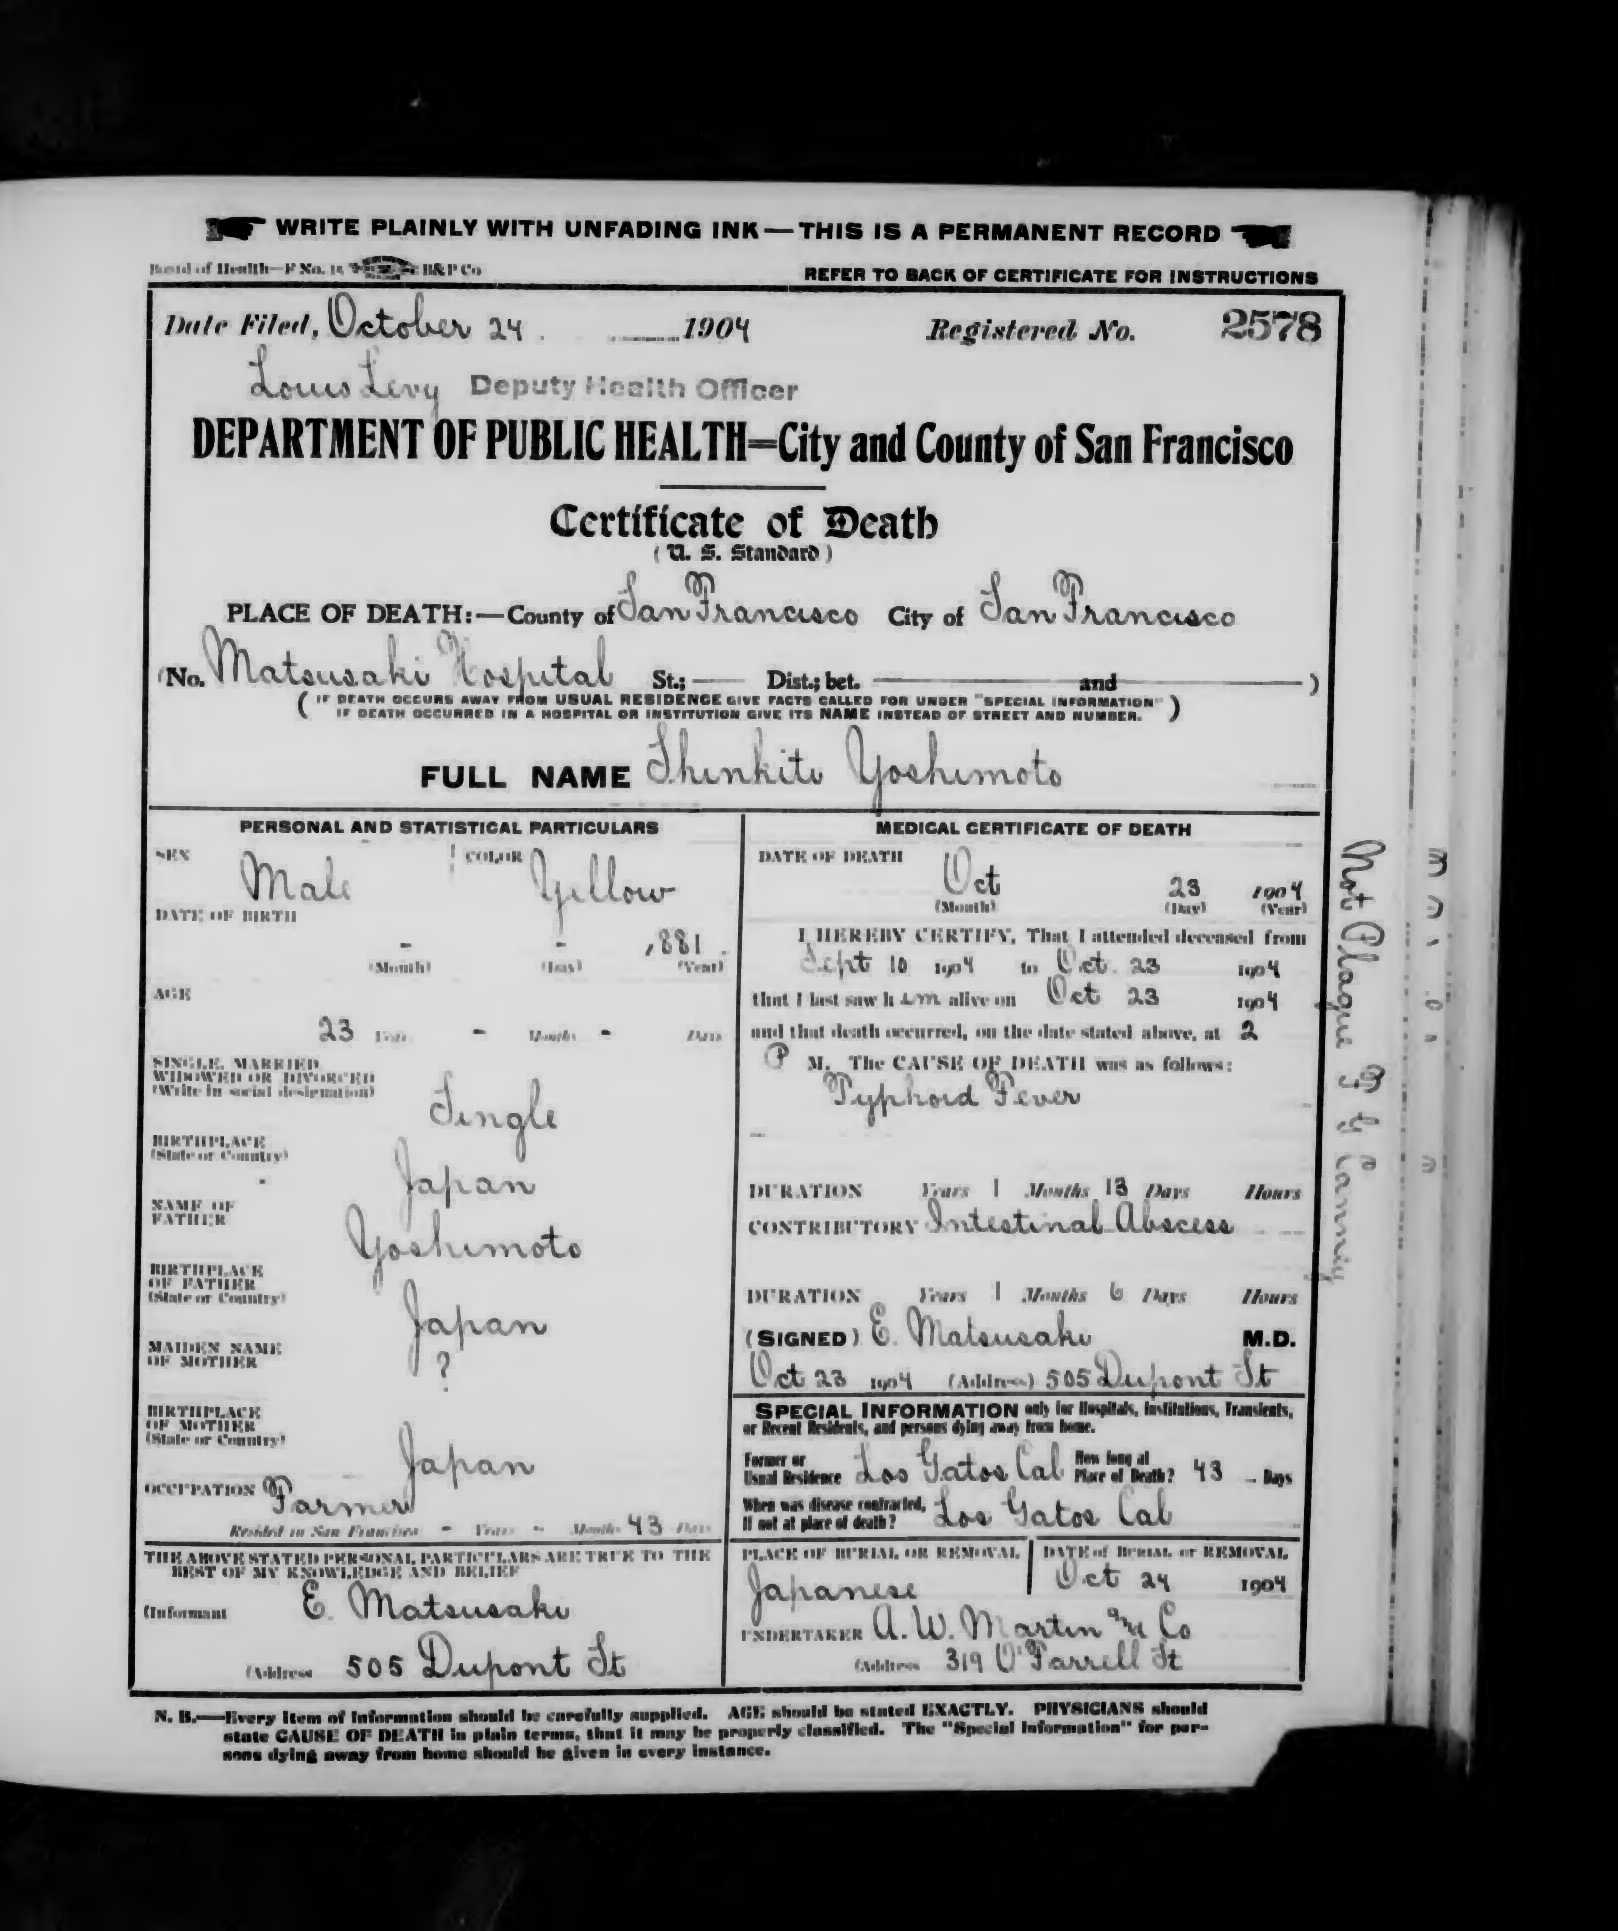 WRITE PLAINLY WITH UNFADING INK — THIS IS A PERMANENT RECORD
Board of Health—F No. 15 B&P Co
REFER TO BACK OF CERTIFICATE FOR INSTRUCTIONS
Date Filed, October 24 1904 Registered No. 2578
Louis Levy Deputy Health Officer
DEPARTMENT OF PUBLIC HEALTH=City and County of San Francisco
Certificate of Death
(U. S. Standard)
PLACE OF DEATH:—County of San Francisco City of San Francisco
(No. Matsusaki Hospital St.; — Dist.; bet. — and — )
( IF DEATH OCCURS AWAY FROM USUAL RESIDENCE GIVE FACTS CALLED FOR UNDER "SPECIAL INFORMATION"
IF DEATH OCCURRED IN A HOSPITAL OR INSTITUTION GIVE ITS NAME INSTEAD OF STREET AND NUMBER. )
FULL NAME Shinkiti Yoshimoto
PERSONAL AND STATISTICAL PARTICULARS
SEX Male COLOR Yellow
DATE OF BIRTH
- - 1881
(Month) (Day) (Year)
AGE
23 Years - Months - Days
SINGLE, MARRIED,
WIDOWED OR DIVORCED
(Write in social designation)
Single
BIRTHPLACE
(State or Country)
Japan
NAME OF
FATHER
Yoshimoto
BIRTHPLACE
OF FATHER
(State or Country)
Japan
MAIDEN NAME
OF MOTHER
?
BIRTHPLACE
OF MOTHER
(State or Country)
Japan
OCCUPATION Farmer
Resided in San Francisco - Years - Months 43 Days
THE ABOVE STATED PERSONAL PARTICULARS ARE TRUE TO THE
BEST OF MY KNOWLEDGE AND BELIEF
(Informant E. Matsusaki
(Address 505 Dupont St
MEDICAL CERTIFICATE OF DEATH
DATE OF DEATH
Oct 23 1904
(Month) (Day) (Year)
I HEREBY CERTIFY, That I attended deceased from
Sept 10 1904 to Oct. 23 1904
that I last saw h im alive on Oct 23 1904
and that death occurred, on the date stated above, at 2
P M. The CAUSE OF DEATH was as follows:
Typhoid Fever
DURATION Years 1 Months 13 Days Hours
CONTRIBUTORY Intestinal Abscess
DURATION Years 1 Months 6 Days Hours
(SIGNED) E. Matsusaki M.D.
Oct 23 1904 (Address) 505 Dupont St
SPECIAL INFORMATION only for Hospitals, Institutions, Transients,
or Recent Residents, and persons dying away from home.
Former or
Usual Residence Los Gatos Cal How long at
Place of Death? 43 Days
When was disease contracted,
If not at place of death? Los Gatos Cal
PLACE OF BURIAL OR REMOVAL DATE of BURIAL or REMOVAL
Japanese Oct 24 1904
UNDERTAKER A. W. Martin and Co
(Address 319 O'Farrell St
N. B.—Every item of information should be carefully supplied. AGE should be stated EXACTLY. PHYSICIANS should
state CAUSE OF DEATH in plain terms, that it may be properly classified. The "Special Information" for per-
sons dying away from home should be given in every instance.
Not Plague